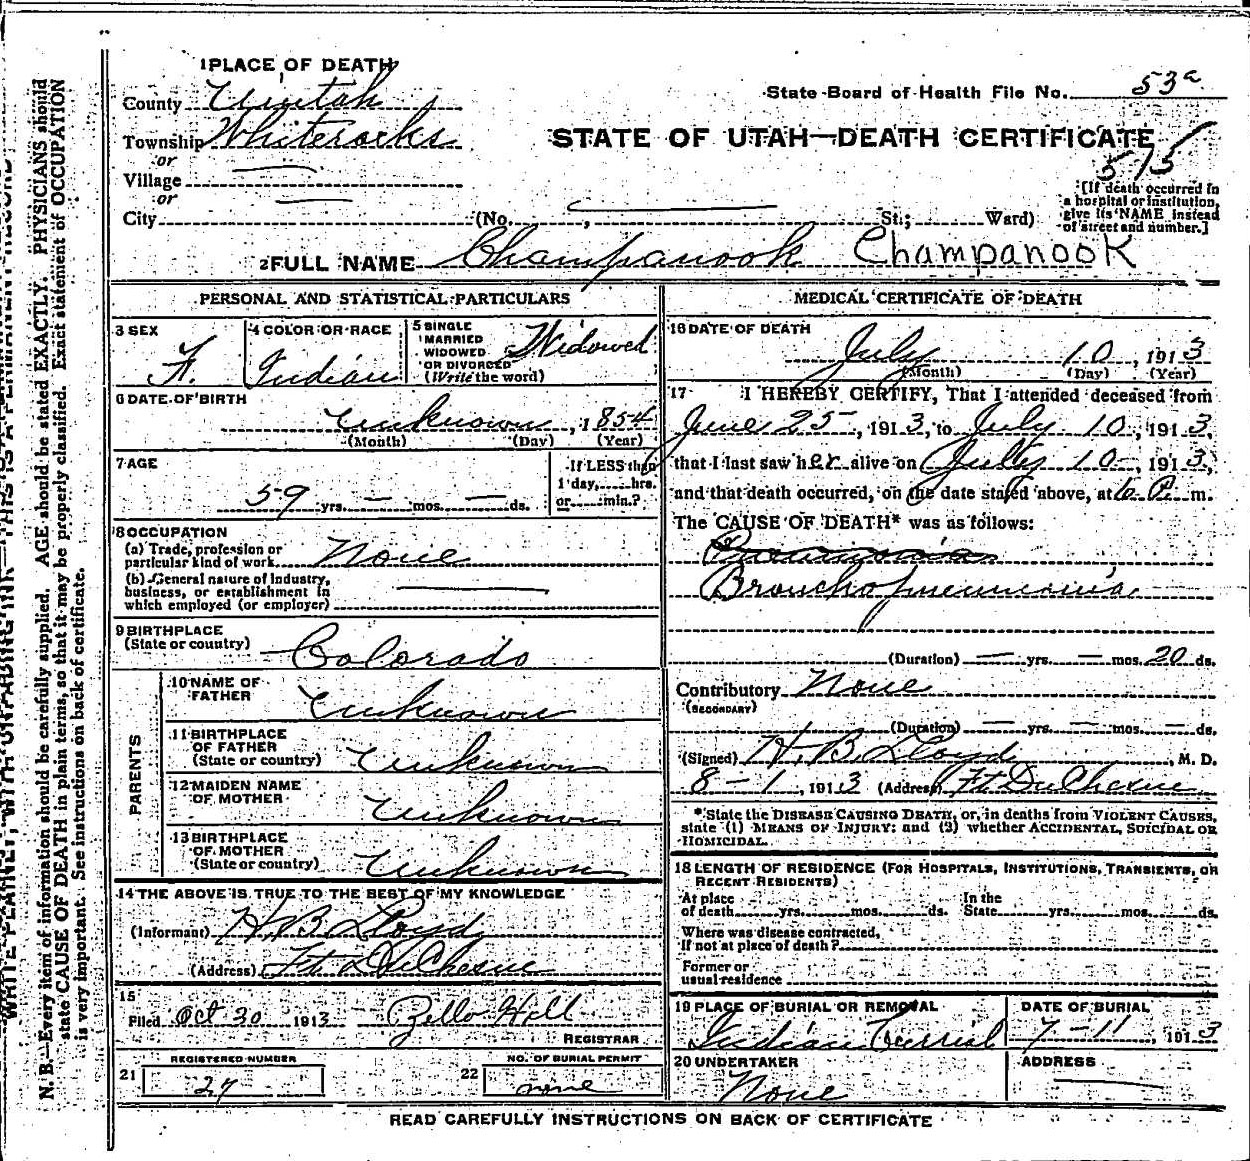 1 PLACE OF DEATH
County Uintah
State Board of Health File No. 53a
Township Whiterocks
STATE OF UTAH—DEATH CERTIFICATE
or
575
Village
or
[If death occurred in a hospital or institution, give its NAME instead of street and number.]
City (No. , St.; Ward)
2 FULL NAME Champanook Champanook
PERSONAL AND STATISTICAL PARTICULARS
3 SEX F.
4 COLOR OR RACE Indian
5 SINGLE MARRIED WIDOWED OR DIVORCED (Write the word) Widowed
6 DATE OF BIRTH
Unknown, 1854
(Month) (Day) (Year)
7 AGE
59 yrs. — mos. — ds.
If LESS than 1 day, hrs. or min.?
8 OCCUPATION
(a) Trade, profession or particular kind of work None
(b) General nature of Industry, business, or establishment in which employed (or employer)
9 BIRTHPLACE
(State or country) Colorado
PARENTS
10 NAME OF FATHER Unknown
11 BIRTHPLACE OF FATHER (State or country) Unknown
12 MAIDEN NAME OF MOTHER Unknown
13 BIRTHPLACE OF MOTHER (State or country) Unknown
14 THE ABOVE IS TRUE TO THE BEST OF MY KNOWLEDGE
(Informant) H. B. Lloyd
(Address) Ft. DuChesne
15
Filed Oct 30 1913 Zella Hall
REGISTRAR
REGISTERED NUMBER
21 27
NO. OF BURIAL PERMIT
22 none
MEDICAL CERTIFICATE OF DEATH
16 DATE OF DEATH
July 10, 1913
(Month) (Day) (Year)
17 I HEREBY CERTIFY, That I attended deceased from
June 25, 1913, to July 10, 1913,
that I last saw her alive on July 10, 1913,
and that death occurred, on the date stated above, at 6 P. m.
The CAUSE OF DEATH* was as follows:
Broncho pneumonia.
(Duration) — yrs. — mos. 20 ds.
Contributory None
(SECONDARY)
(Duration) — yrs. — mos. — ds.
(Signed) H. B. Lloyd, M. D.
8 - 1, 1913 (Address) Ft. DuChesne
* State the DISEASE CAUSING DEATH, or, in deaths from VIOLENT CAUSES,
state (1) MEANS OF INJURY: and (2) whether ACCIDENTAL, SUICIDAL OR
HOMICIDAL.
18 LENGTH OF RESIDENCE (FOR HOSPITALS, INSTITUTIONS, TRANSIENTS, OR
RECENT RESIDENTS)
At place of death yrs. mos. ds. In the State yrs. mos. ds.
Where was disease contracted,
If not at place of death?
Former or
usual residence
19 PLACE OF BURIAL OR REMOVAL
Indian Burial
DATE OF BURIAL
7-11, 1913
20 UNDERTAKER
None
ADDRESS
READ CAREFULLY INSTRUCTIONS ON BACK OF CERTIFICATE
N. B.—Every item of information should be carefully supplied. AGE should be stated EXACTLY. PHYSICIANS should
state CAUSE OF DEATH in plain terms, so that it may be properly classified. Exact statement of OCCUPATION
is very important. See instructions on back of certificate.